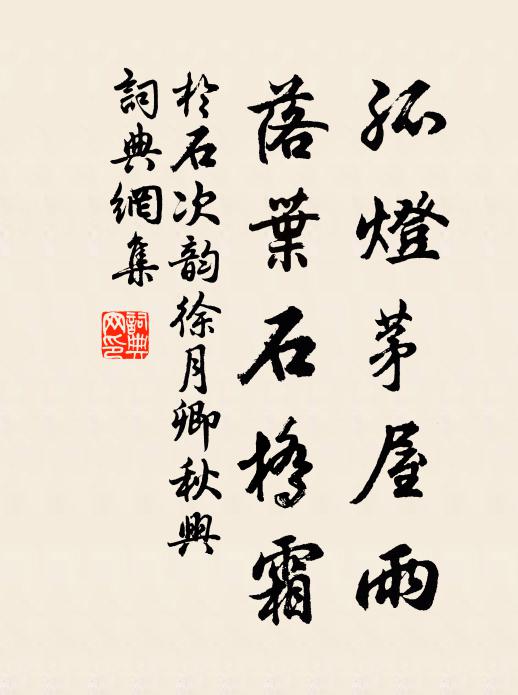 孤燈茅屋雨
落葉石橋霜
於石次韵徐月卿秋興
詞典網集
詞典
网印